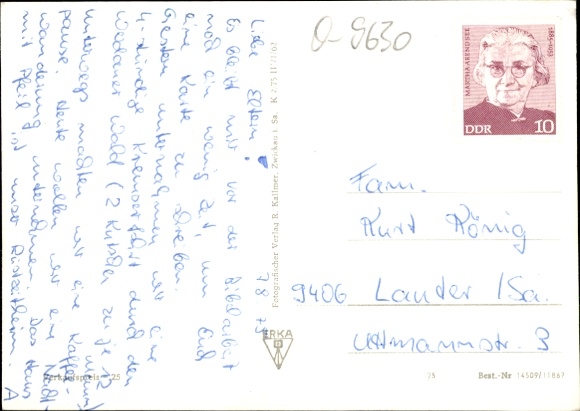 Liebe Eltern!
7.8.75
Es bleibt mir vor der Bibelarbeit
noch ein wenig Zeit, um Euch
eine Karte zu schreiben.
Gestern unternahmen wir eine
4-stündige Kremserfahrt durch den
Werdauer Wald (2 Kutschen zu je 12
unterwegs machten wir eine Kaffee-
pause. Heute wollen wir eine Nacht-
wanderung unternehmen. Das Haus
mit Pfeil ist unser Rüstzeitheim. A
O-9630
MARTHA ARENDSEE
1885-1953
DDR 10
Fam.
Kurt König
9406 Lauter/Sa.
Uttmannstr. 3
Fotografischer Verlag R. Kallmer, Zwickau i. Sa. K 2/75 II/7/162
ERKA
Verkaufspreis -,25
25 Best.-Nr 14509/11867